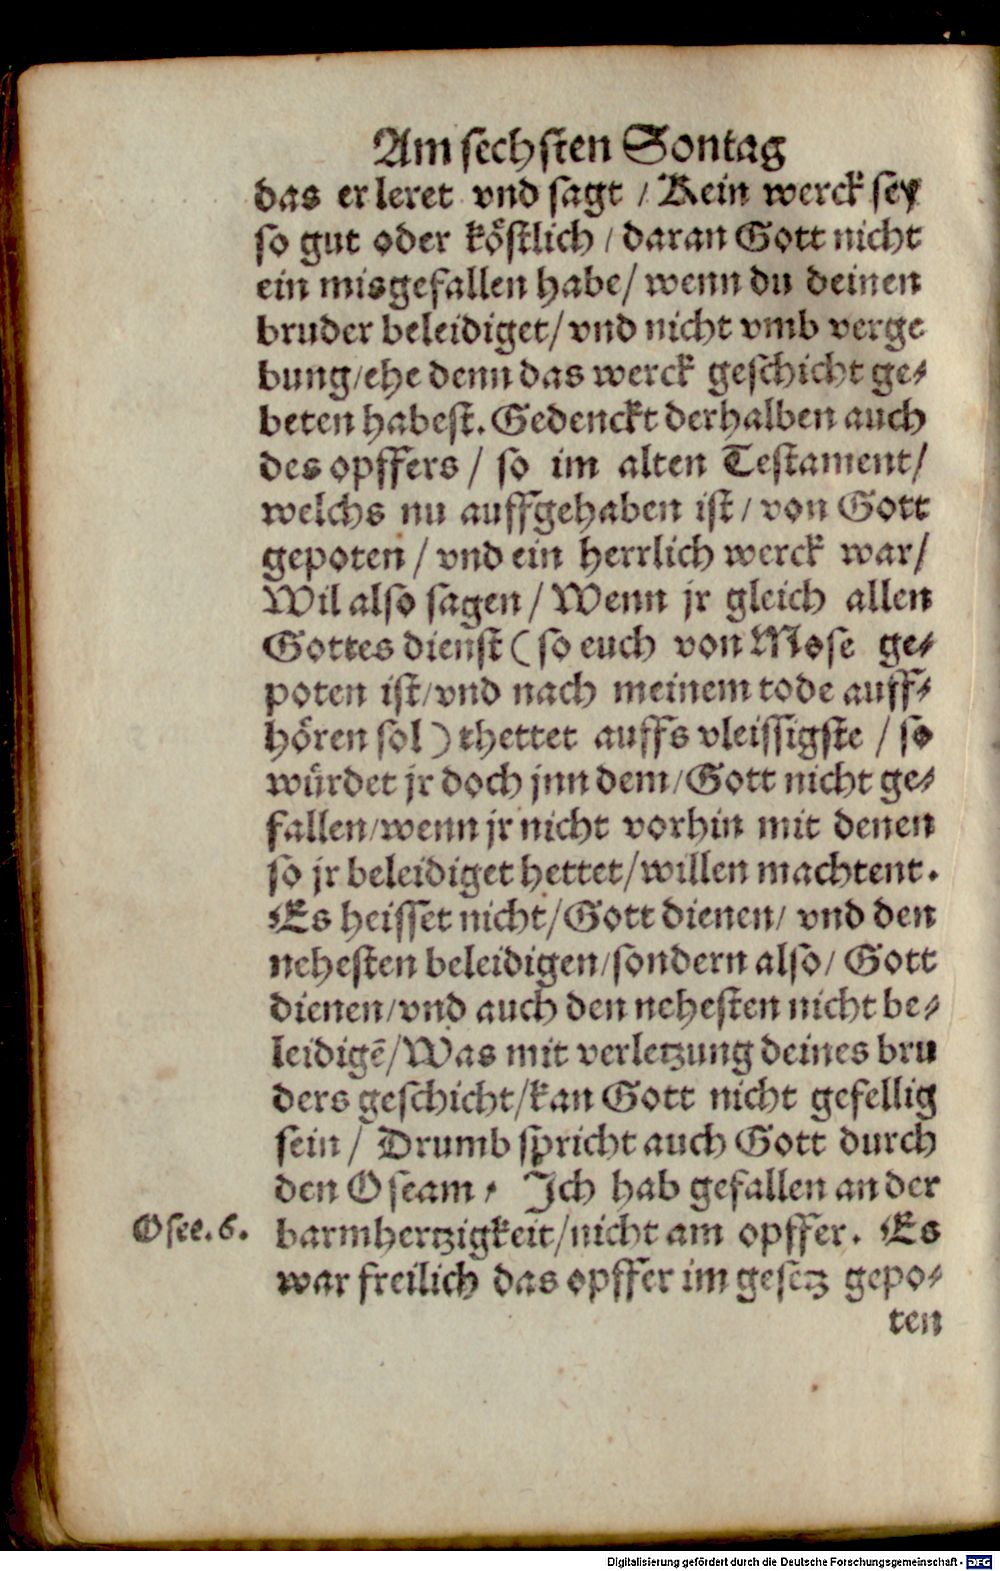 Am sechsten Sontag
das er leret vnd sagt / Kein werck sey
so gut oder köstlich / daran Gott nicht
ein misgefallen habe / wenn du deinen
bruder beleidiget / vnd nicht vmb verge
bung / ehe denn das werck geschicht ge-
beten habest. Gedenckt derhalben auch
des opffers / so im alten Testament /
welchs nu auffgehaben ist / von Gott
gepoten / vnd ein herrlich werck war /
Wil also sagen / Wenn jr gleich allen
Gottes dienst ( so euch von Mose ge-
poten ist / vnd nach meinem tode auff-
hören sol ) thettet auffs vleissigste / so
würdet jr doch jnn dem / Gott nicht ge-
fallen / wenn jr nicht vorhin mit denen
so jr beleidiget hettet / willen machtent.
Es heisset nicht / Gott dienen / vnd den
nehesten beleidigen / sondern also / Gott
dienen / vnd auch den nehesten nicht be-
leidigẽ / Was mit verletzung deines bru
ders geschicht / kan Gott nicht gefellig
sein / Drumb spricht auch Gott durch
den Oseam / Ich hab gefallen an der
Osee. 6. barmhertzigkeit / nicht am opffer. Es
war freilich das opffer im gesetz gepo-
ten
Digitalisierung gefördert durch die Deutsche Forschungsgemeinschaft - DFG